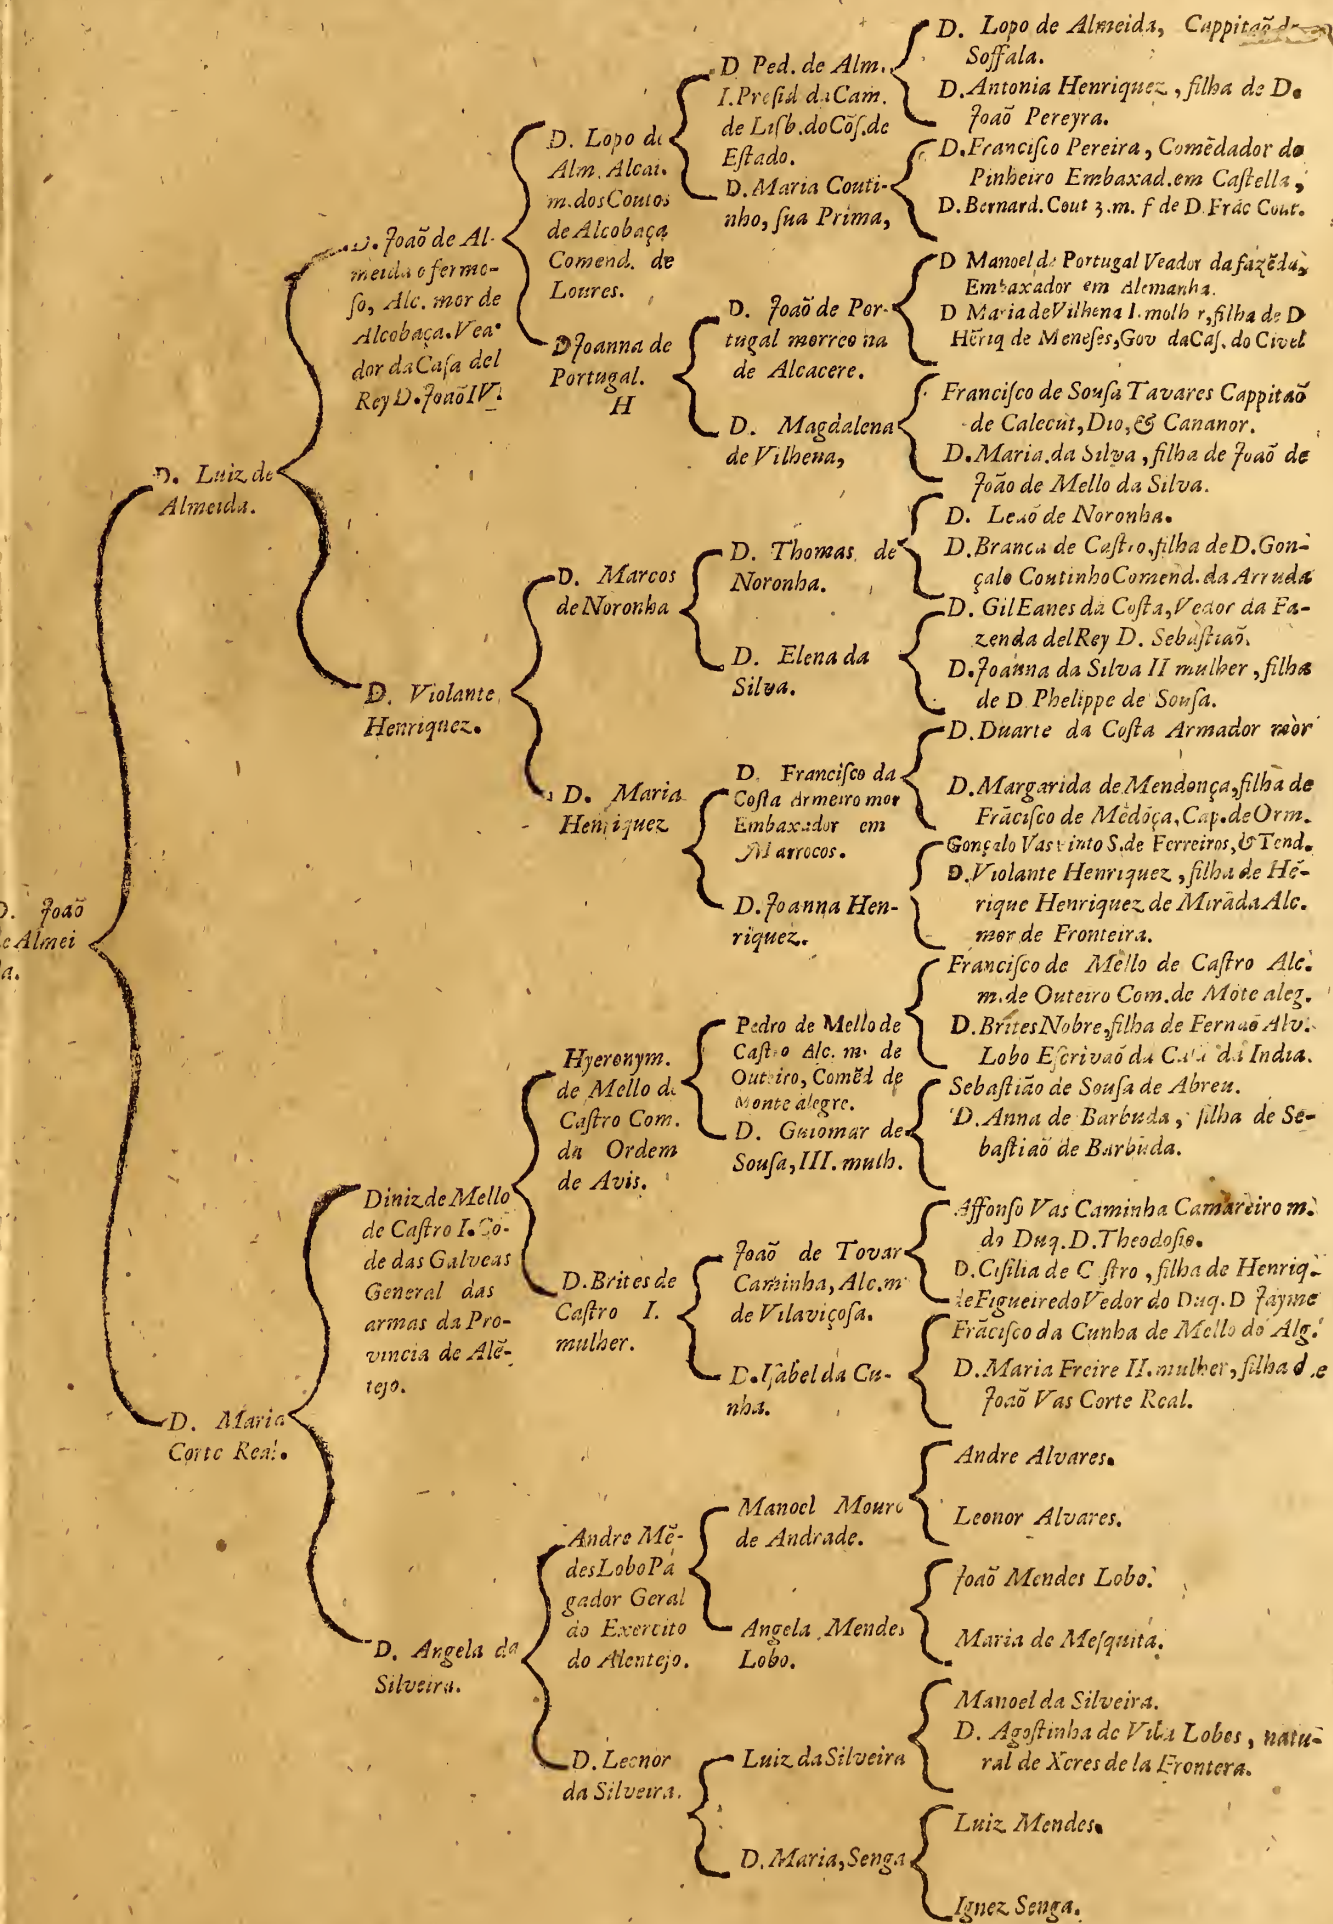 D. Joaõ
de Almei
da.
D. Luiz de
Almeida.
D. Maria
Corte Real.
D. Joaõ de Al-
meida o fermo-
ſo, Alc. mor de
Alcobaça. Vea-
dor da Caſa del
Rey D. Joaõ IV.
D. Violante
Henriquez.
Diniz de Mello
de Caſtro I. Cõ-
de das Galveas
General das
armas da Pro-
vincia de Alẽ-
tejo.
D. Angela da
Silveira.
D. Lopo de
Alm. Alcai.
m. dos Coutos
de Alcobaça
Comend. de
Loures.
D Joanna de
Portugal.
H
D. Marcos
de Noronha
D. Maria
Henriquez
Hyeronym.
de Mello de
Caſtro Com.
da Ordem
de Avis.
D. Brites de
Caſtro I.
mulher.
Andre Mẽ-
des Lobo Pa
gador Geral
do Exercito
do Alentejo.
D. Leonor
da Silveira.
D Ped. de Alm.
I. Preſid da Cam.
de Lisb. do Cõſ. de
Eſtado.
D. Maria Couti-
nho, ſua Prima,
D. Joaõ de Por-
tugal morreo na
de Alcacere.
D. Magdalena
de Vilhena,
D. Thomas de
Noronha.
D. Elena da
Silva.
D. Franciſco da
Coſta Armeiro mor
Embaxador em
Marrocos.
D. Joanna Hen-
riquez.
Pedro de Mello de
Caſtro Alc. m. de
Outeiro, Comẽd de
Monte alegre.
D. Guiomar de
Souſa, III. mulh.
Joaõ de Tovar
Caminha, Alc. m
de Vilaviçoſa.
D. Iſabel da Cu-
nha.
Manoel Mouro
de Andrade.
Angela Mendes
Lobo.
Luiz da Silveira
D. Maria, Senga
D. Lopo de Almeida, Cappitaõ de
Soffala.
D. Antonia Henriquez, filha de D.
Joaõ Pereyra.
D. Franciſco Pereira, Comẽdador do
Pinheiro Embaxad. em Caſtella,
D. Bernard. Cout 3. m. f de D Frãc Cout.
D Manoel de Portugal Veador da fazẽda,
Embaxador em Alemanha.
D Maria de Vilhena I. molh r, filha de D
Hẽriq de Meneſes, Gov da Caſ. do Civel
Franciſco de Souſa Tavares Cappitaõ
de Calecut, Dio, & Cananor.
D. Maria. da Silva, filha de Joaõ de
João de Mello da Silva.
D. Leaõ de Noronha.
D. Branca de Caſtro, filha de D. Gon-
çalo Coutinho Comend. da Arruda
D. Gil Eanes da Coſta, Vedor da Fa-
zenda del Rey D. Sebaſtiaõ.
D. Joanna da Silva II mulher, filha
de D Phelippe de Souſa.
D. Duarte da Coſta Armador mòr
D. Margarida de Mendonça, filha de
Frãciſco de Mẽdõça, Cap. de Orm.
Gonçalo Vas Pinto S. de Ferreiros, & Tend.
D. Violante Henriquez, filha de Hẽ-
rique Henriquez de Mirãda Alc.
mor de Fronteira.
Franciſco de Mello de Caſtro Alc.
m. de Outeiro Com. de Mõte aleg.
D. Brites Nobre, filha de Fernaõ Alv.
Lobo Eſcrivaõ da Caſa da India.
Sebaſtião de Souſa de Abreu.
D. Anna de Barbuda, filha de Se-
baſtiaõ de Barbuda.
Affonſo Vas Caminha Camareiro m.
do Duq. D. Theodoſio.
D. Ciſilia de C ſtro, filha de Henriq.
de Figueiredo Vedor do Duq. D Jayme
Frãciſco da Cunha de Mello do Alg.
D. Maria Freire II. mulher, filha de
Joaõ Vas Corte Real.
Andre Alvares.
Leonor Alvares.
Joaõ Mendes Lobo.
Maria de Meſquita.
Manoel da Silveira.
D. Agoſtinha de Vila Lobos, natu-
ral de Xeres de la Frontera.
Luiz Mendes.
Ignez Senga.